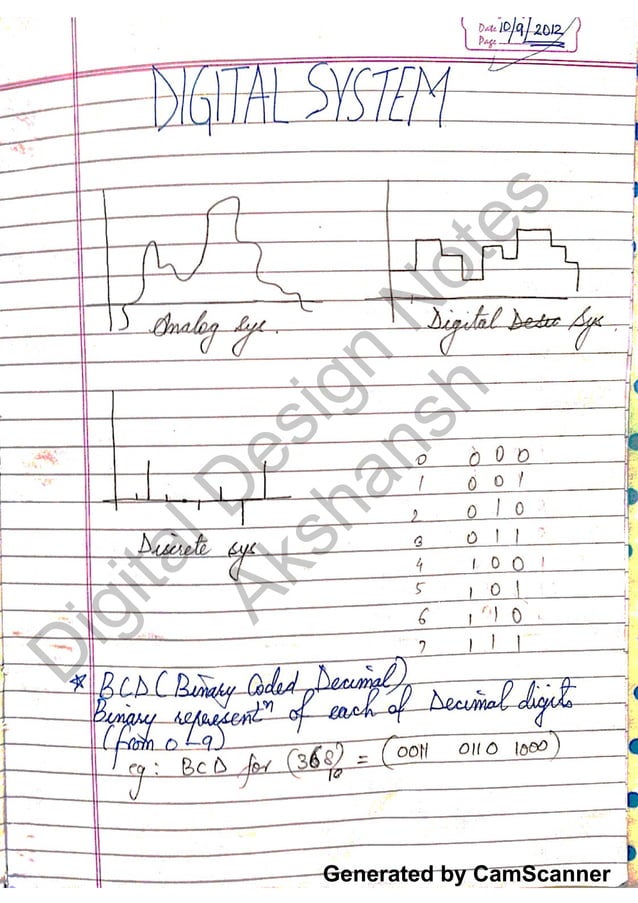 Date 10/9/2012
Page
DIGITAL SYSTEM
Analog Sys.
Digital Sys.
Discrete sys
0 0 0 0
1 0 0 1
2 0 1 0
3 0 1 1
4 1 0 0
5 1 0 1
6 1 1 0
7 1 1 1
* BCD (Binary Coded Decimal)
Binary representⁿ of each of Decimal digits
(from 0-9)
eg: BCD for (368)₁₀ = (0011 0110 1000)
Digital Design Notes
Akshansh
Generated by CamScanner